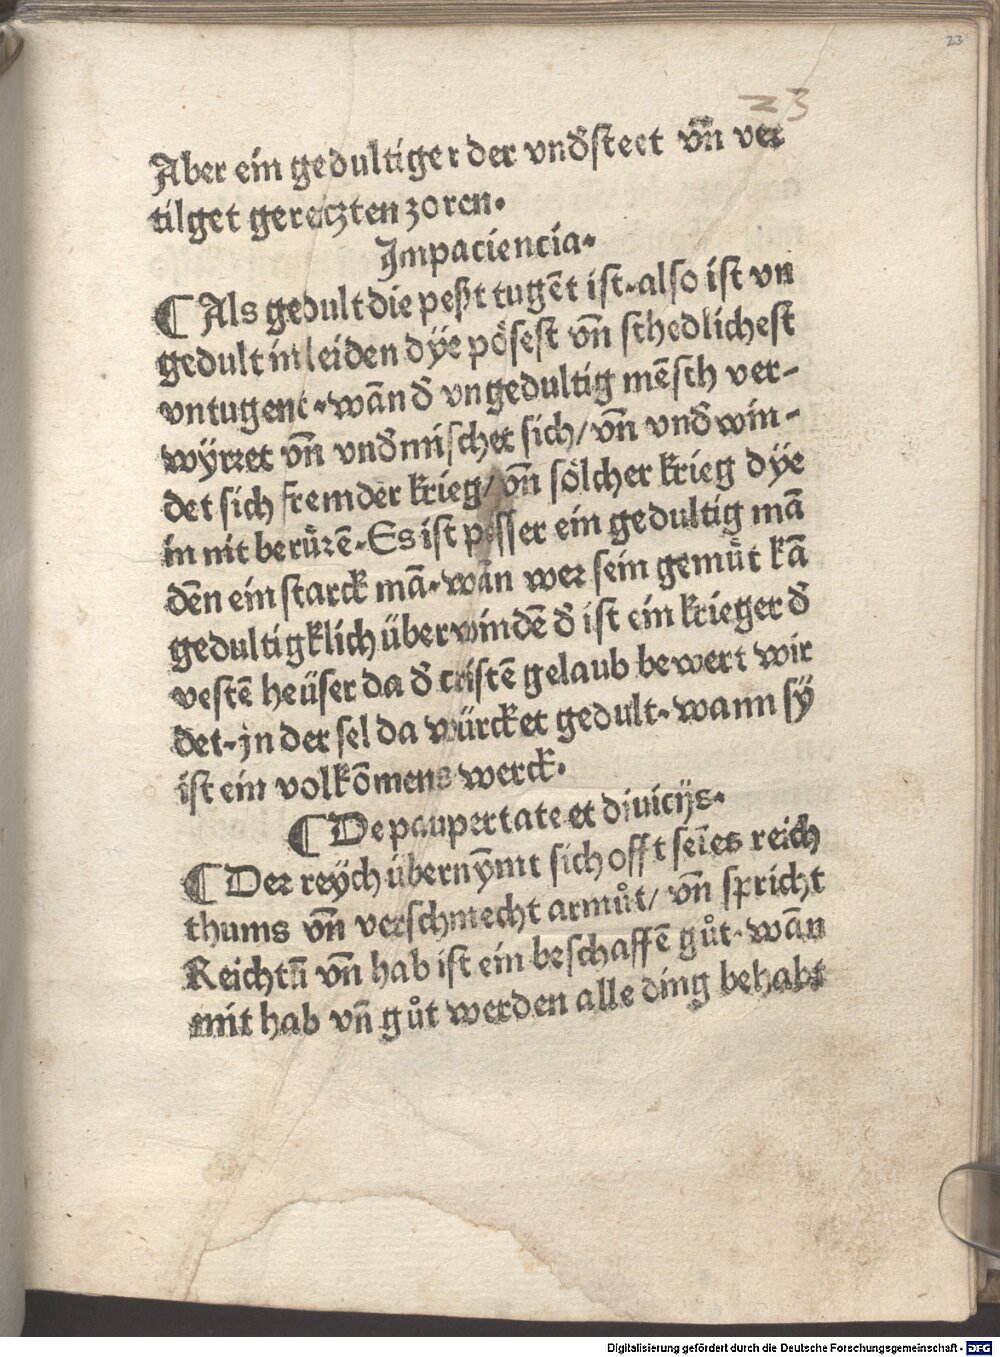 23
23
Aber ein gedultiger der vnd̄steet vn̄ ver
tilget gereitzten zoren.
Impaciencia.
¶ Als gedult die peszt tugēt ist. also ist vn
gedult in leiden dÿe pösest vn̄ schedlichest
vntugent. wān d̄ vngedultig mēsch ver-
wÿrret vn̄ vnd̄mischet sich/ vn̄ vnd̄win-
det sich fremder krieg/ vn̄ sölcher krieg dÿe
in nit berürē. Es ist pesser ein gedultig mā
dēn ein starck mā. wān wer sein gemüt kā
gedultigklich überwindē d̄ ist ein krieger d̄
vestē heüser da d̄ cristē gelaub bewert wir
det. jn der sel da würcket gedult. wann sÿ
ist ein volkōmens werck.
¶ De paupertate et diuicijs.
¶ Der reÿch übernȳmt sich offt seīes reich
thums vn̄ verschmecht armůt/ vn̄ spricht
Reichtū vn̄ hab ist ein beschaffē gůt. wān
mit hab vn̄ gůt werden alle ding behabt
Digitalisierung gefördert durch die Deutsche Forschungsgemeinschaft - DFG